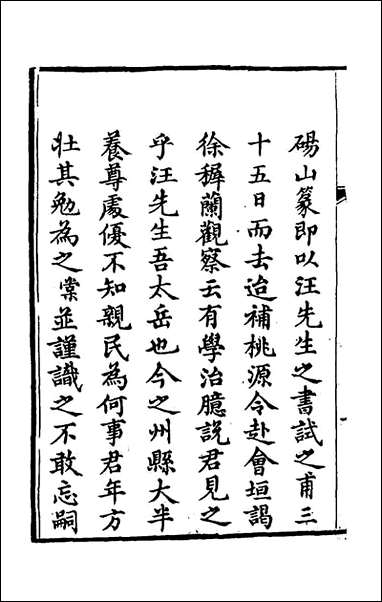 碭山篆即以汪先生之書試之甫三
十五日而去迨補桃源令赴會垣謁
徐穉蘭觀察云有學治臆說君見之
乎汪先生吾太岳也今之州縣大半
養尊處優不知親民為何事君年方
壯其勉為之棠並謹識之不敢忘嗣